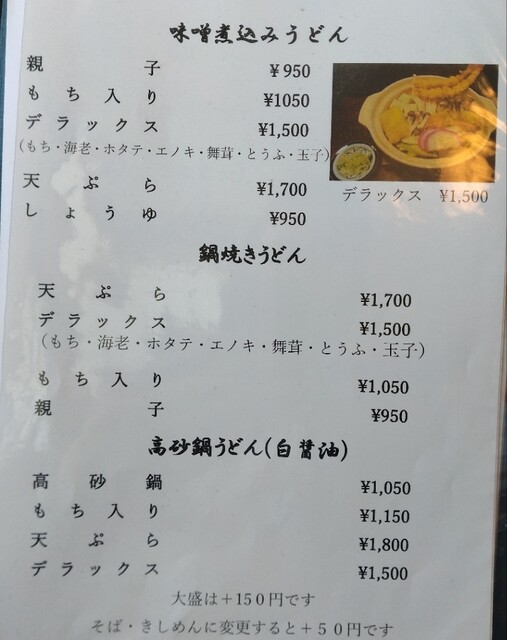 味噌煮込みうどん
親子 ¥950
もち入り ¥1050
デラックス ¥1,500
(もち・海老・ホタテ・エノキ・舞茸・とうふ・玉子)
天ぷら ¥1,700
しょうゆ ¥950
デラックス ¥1,500
鍋焼きうどん
天ぷら ¥1,700
デラックス ¥1,500
(もち・海老・ホタテ・エノキ・舞茸・とうふ・玉子)
もち入り ¥1,050
親子 ¥950
高砂鍋うどん(白醤油)
高砂鍋 ¥1,050
もち入り ¥1,150
天ぷら ¥1,800
デラックス ¥1,500
大盛は+150円です
そば・きしめんに変更すると+50円です